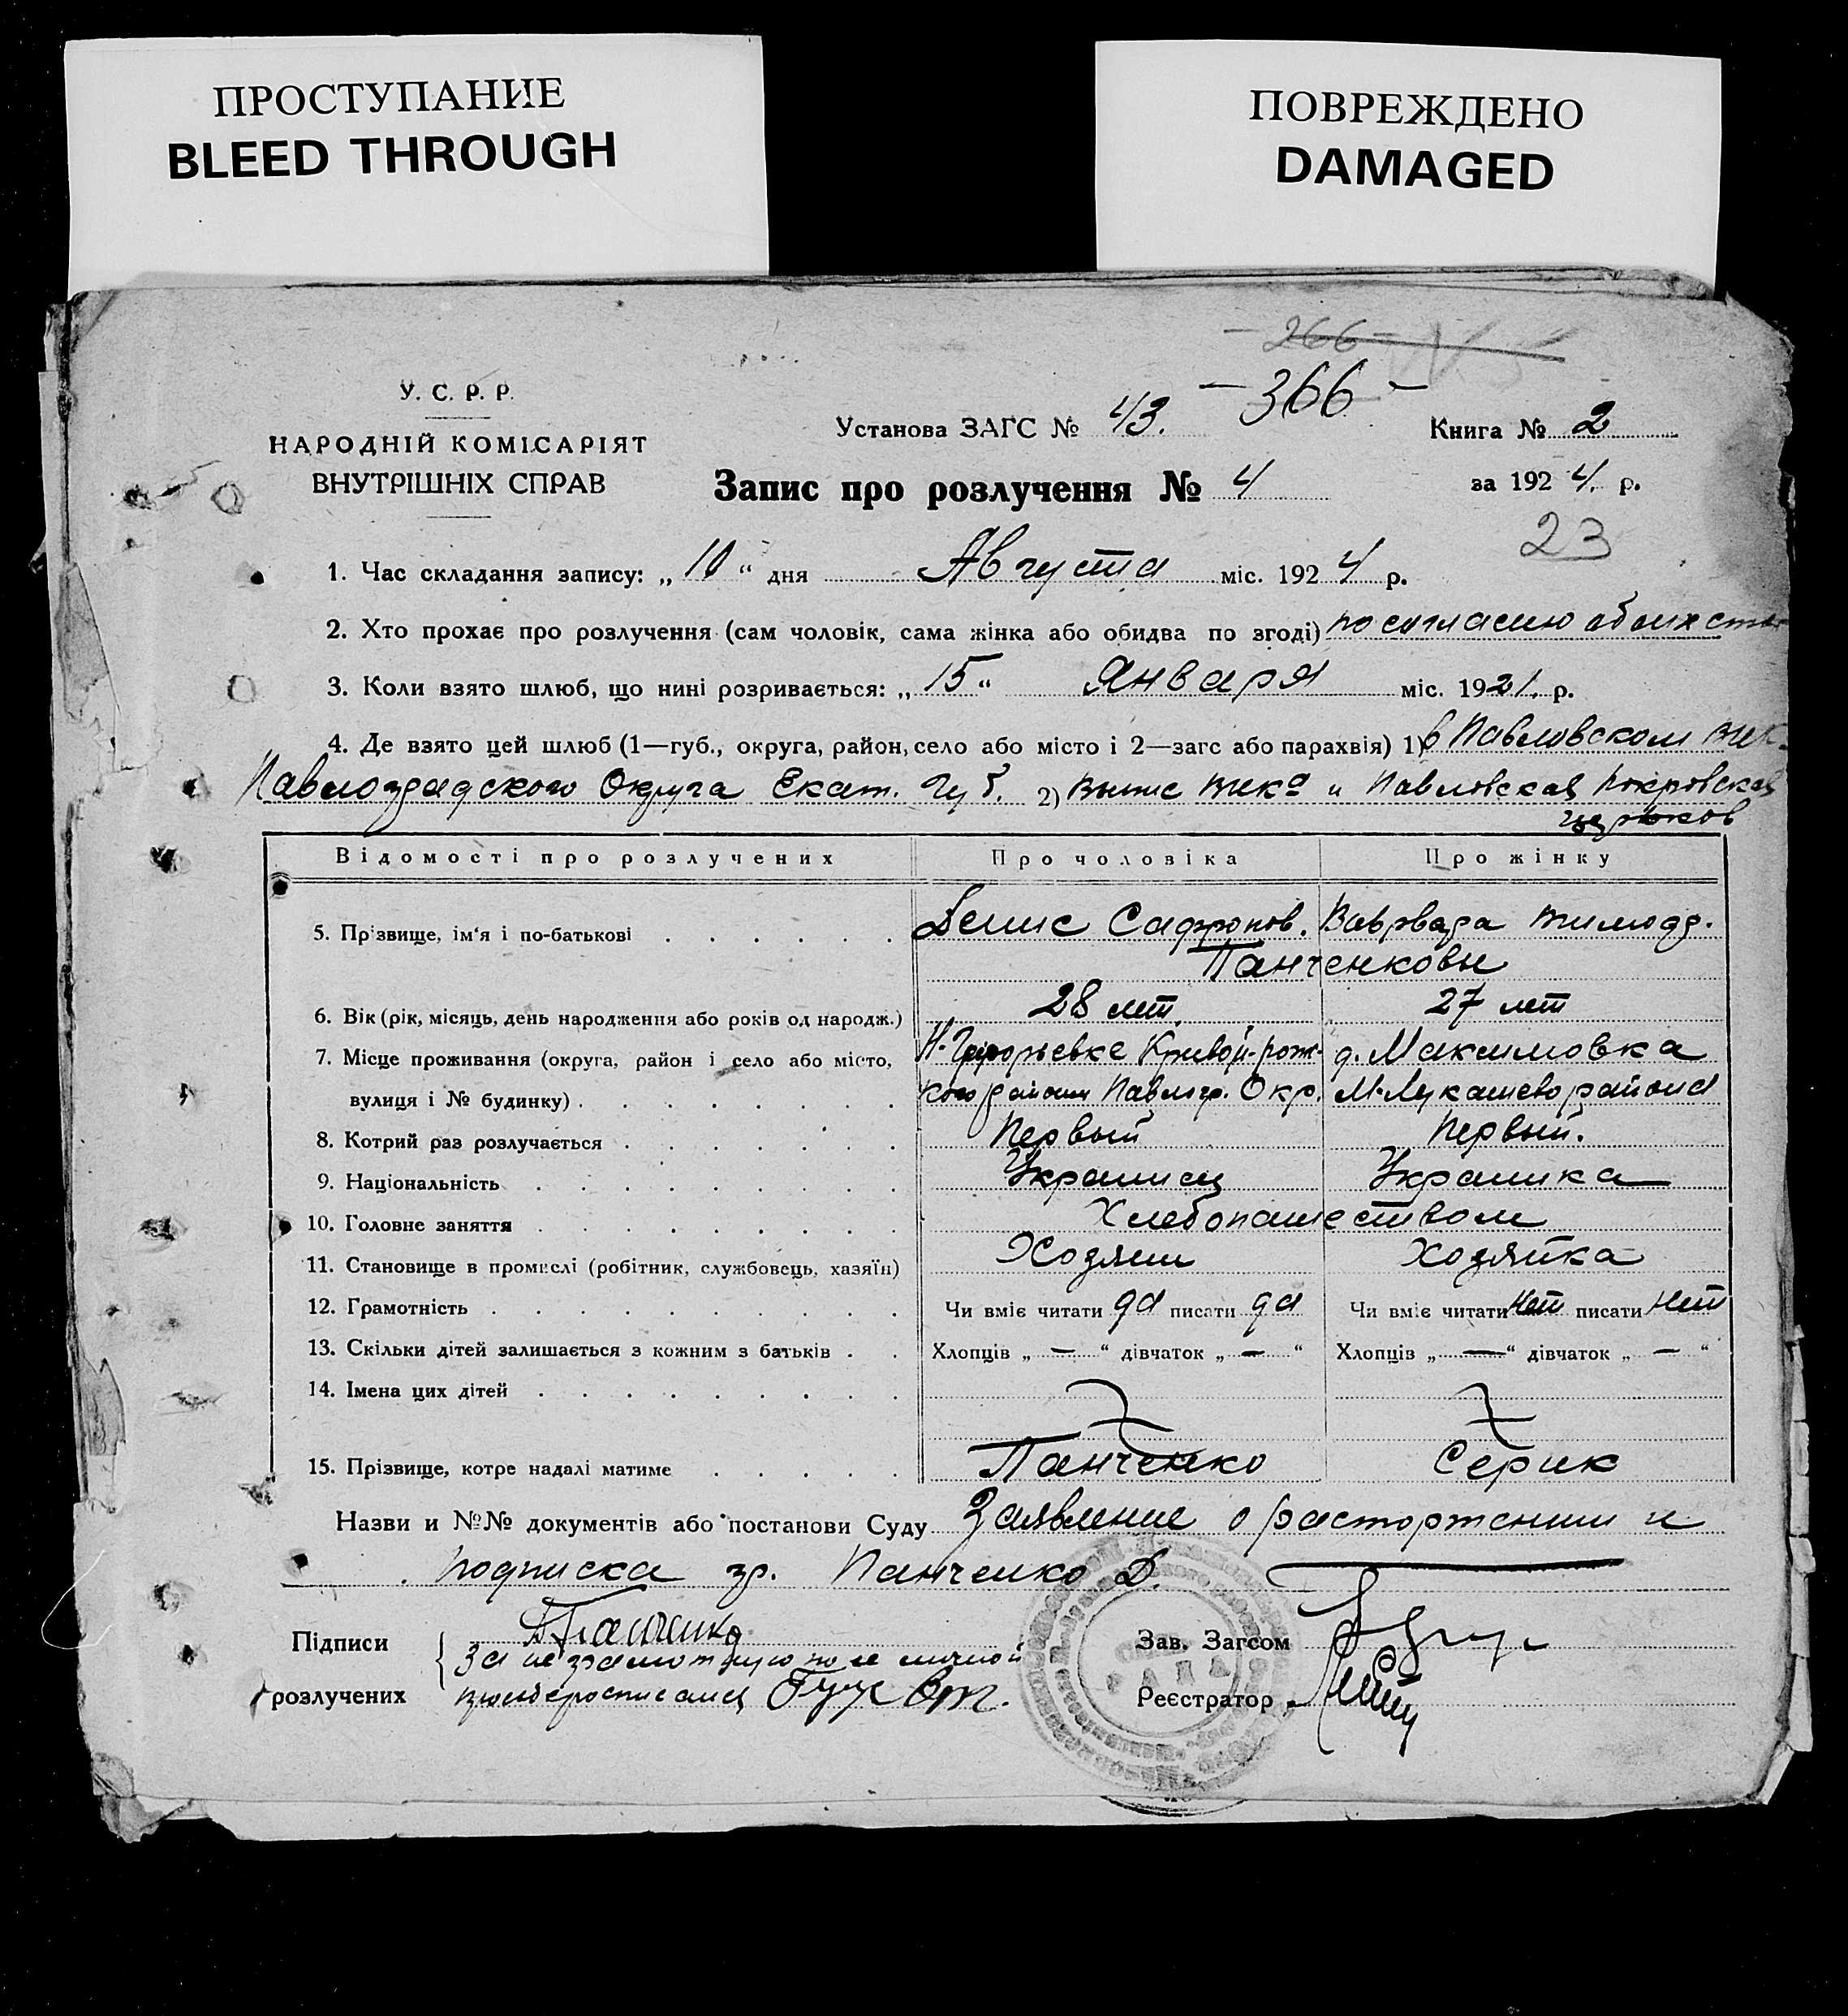 ПРОСТУПАНИЕ
BLEED THROUGH
ПОВРЕЖДЕНО
DAMAGED
266
У. С. Р. Р.
НАРОДНІЙ КОМІСАРІЯТ
ВНУТРІШНІХ СПРАВ
Установа ЗАГС № 43. - 366 - Книга № 2
Запис про розлучення № 4 за 1924 р.
23
1. Час складання запису: „10“ дня Августа міс. 1924 р.
2. Хто прохає про розлучення (сам чоловік, сама жінка або обидва по згоді) по согласию обоих сто
3. Коли взято шлюб, що нині розривається: „15“ Января міс. 1921. р.
4. Де взято цей шлюб (1—губ., округа, район, село або місто і 2—загс або парахвія) 1) в Павловском вик.
Павлоградского Округа Екат. Губ. 2) выше вика и Павловская Покровская
церков
Відомості про розлучених Про чоловіка Про жінку
5. Прізвище, ім‘я і по-батькові Денис Сафронов. Варвара Тимофф.
Панченковы
6. Вік (рік, місяць, день народження або років од народж.) 28 лет. 27 лет
7. Місце проживання (округа, район і село або місто, Н-Григорьевке Кривой-рож- д. Максимовка
вулиця і № будинку) кого района Павлогр. Окр. М-Лукашево района
8. Котрий раз розлучається Первый Первый.
9. Національність Украинец Украинка
10. Головне заняття Хлебопашеством
11. Становище в промислі (робітник, службовець, хазяїн) Хозяин Хозяйка
12. Грамотність Чи вміє читати да писати да Чи вміє читати нет писати нет
13. Скільки дітей залишається з кожним з батьків Хлопців „ — “ дівчаток „ — “ Хлопців „ — “ дівчаток „ — “
14. Імена цих дітей
15. Прізвище, котре надалі матиме Панченко Серик
Назви и №№ документів або постанови Суду Заявление о расторжении и
подписка гр. Панченко Д.
Підписи Д Панченко Зав. Загсом
За неграмотную по ее личной
розлучених просьбе расписался Реєстратор